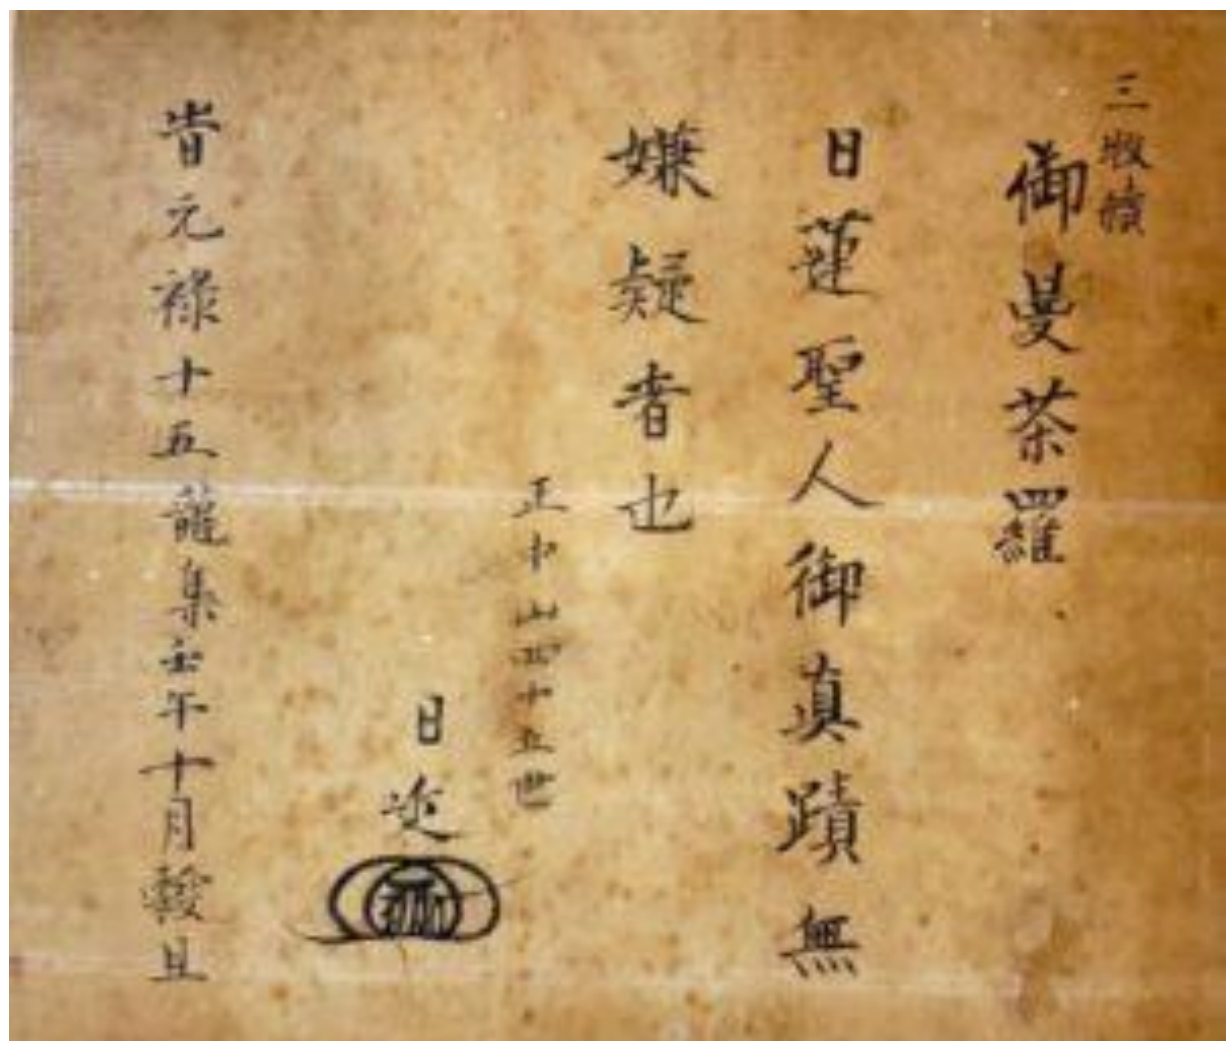 三枚續
御曼荼羅
日蓮聖人御真蹟無
嫌疑者也
正中山四十五世
日迯
旹元祿十五龍集壬午十月穀旦